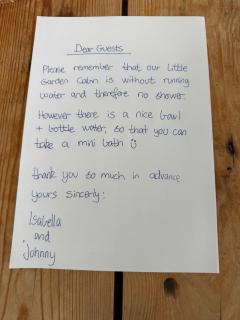 Dear Guests
Please remember that our Little
Garden Cabin is without running
water and therefore no shower.
However there is a nice bowl
+ bottle water, so that you can
take a mini bath ☺
thank you so much in advance
yours sincerly:
Isabella
and
Johnny